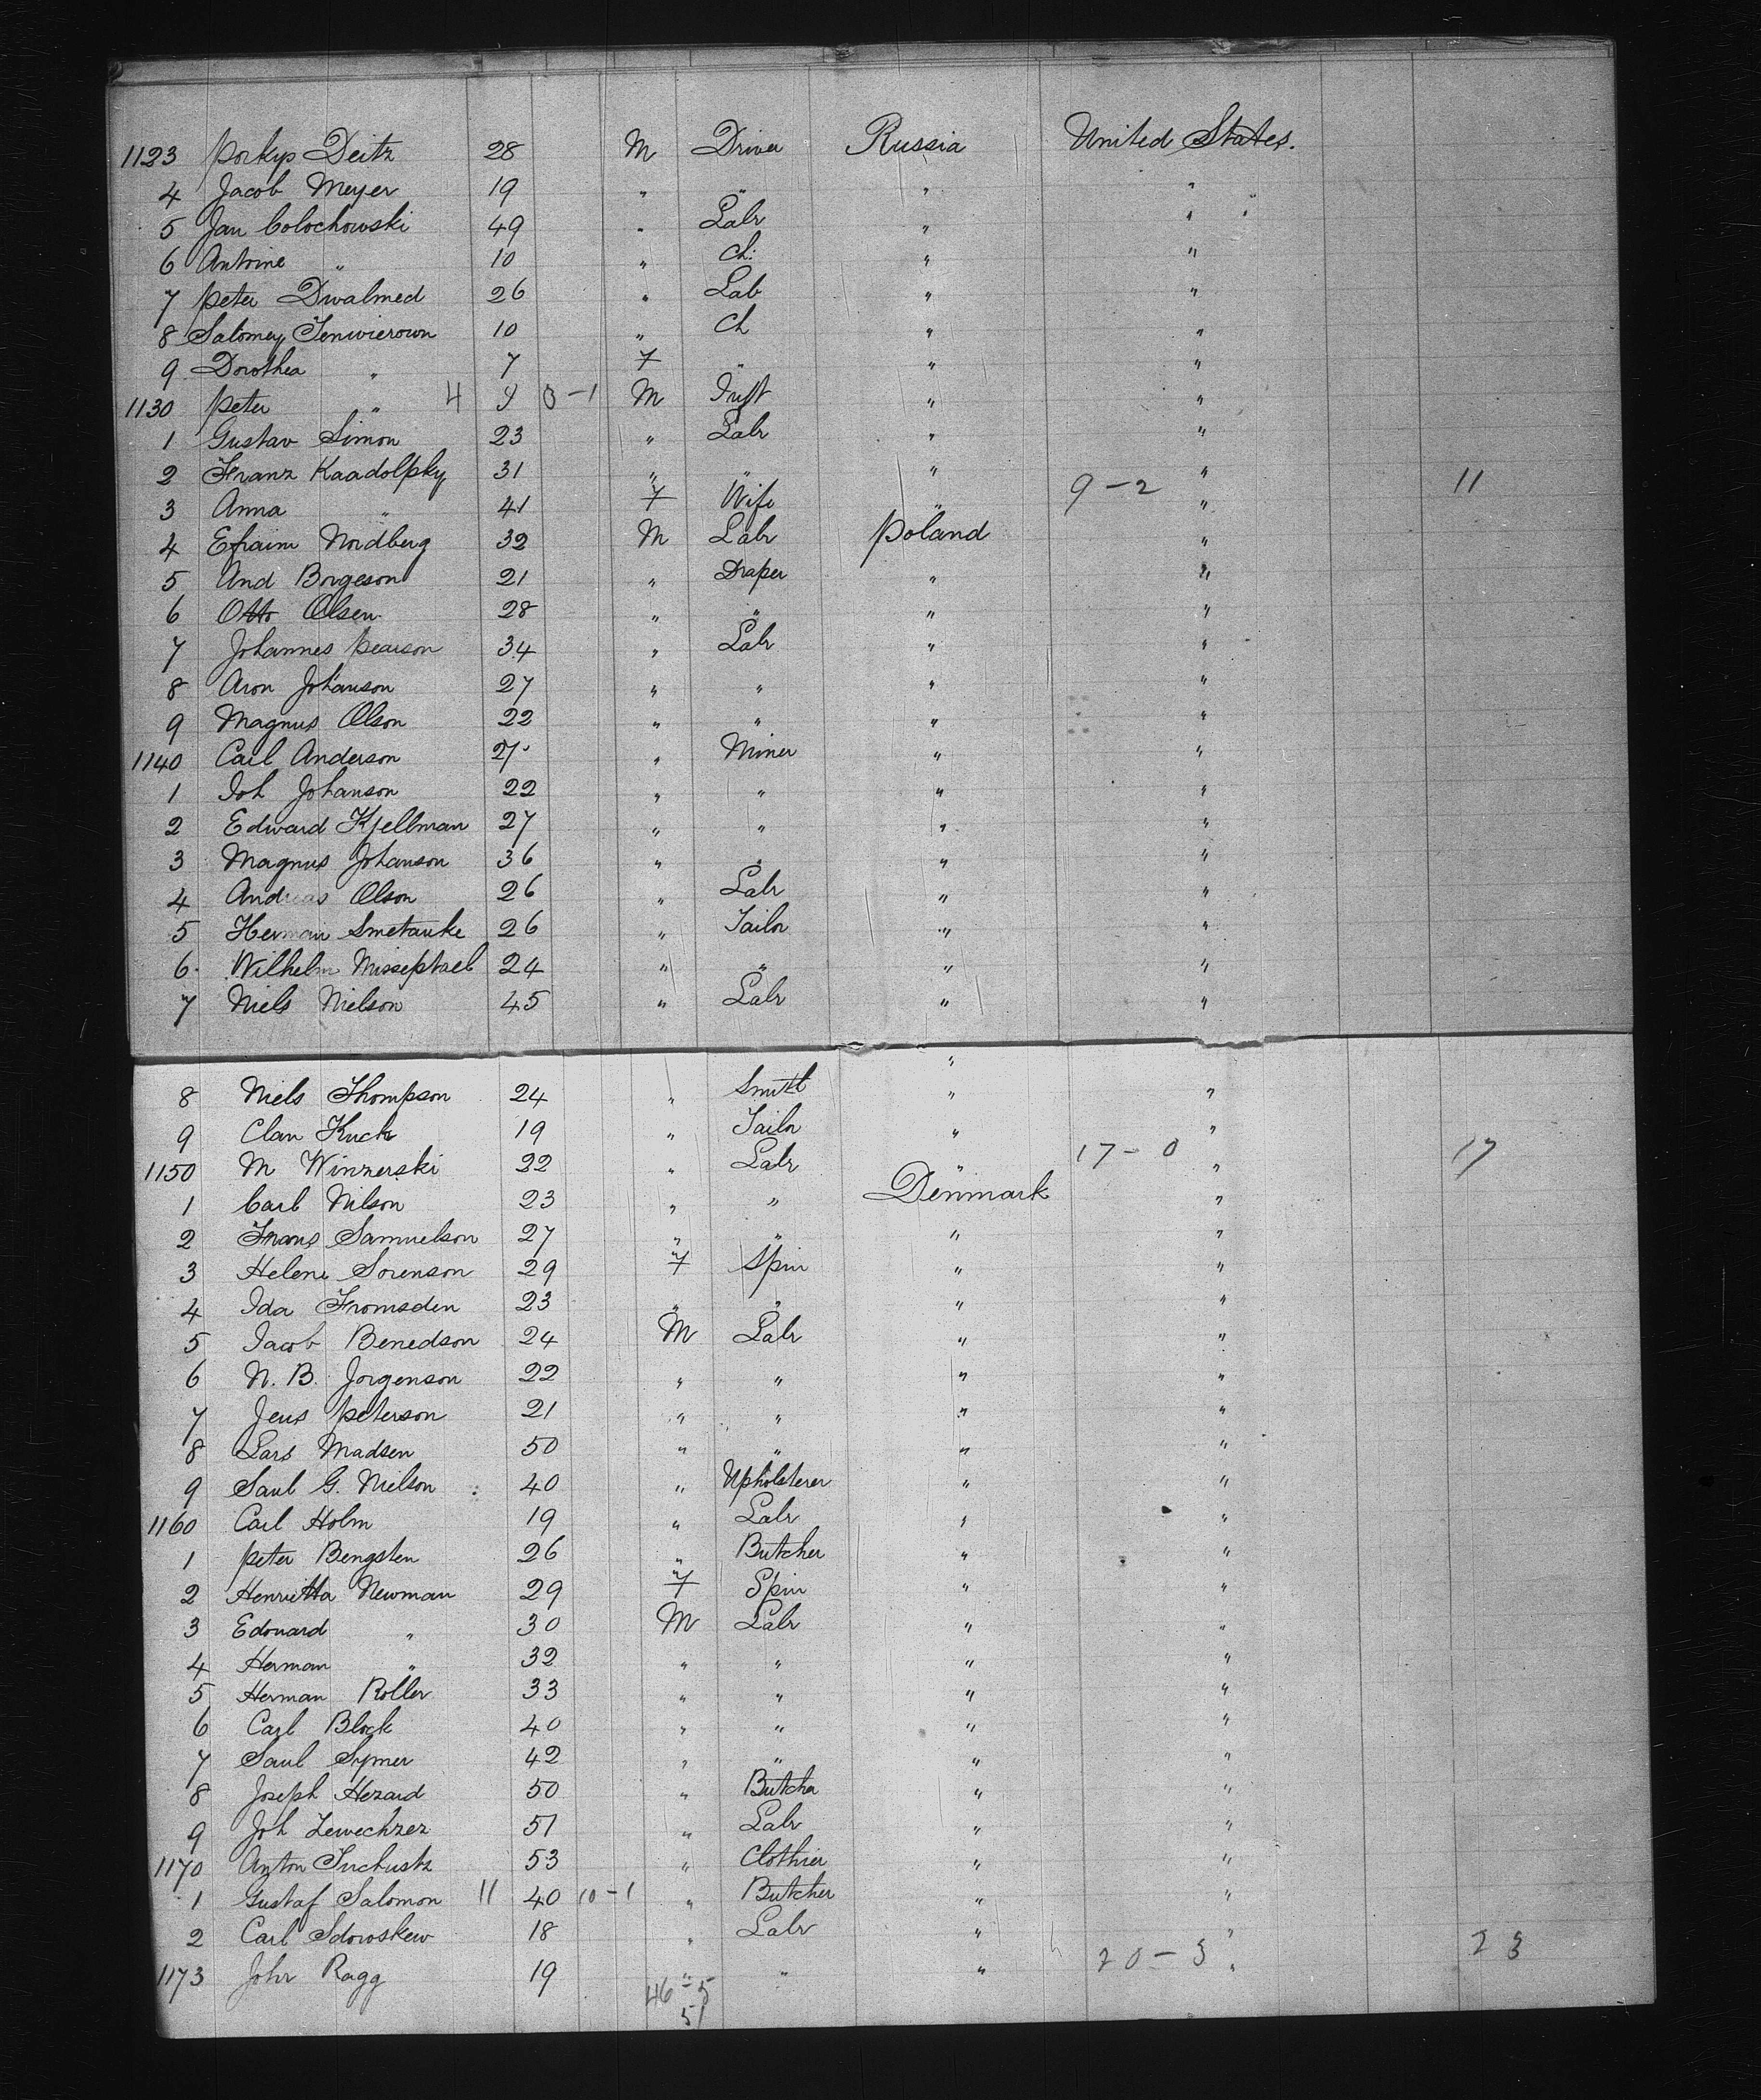 1123 Porkys Deitz 28 M Driver Russia United States.
4 Jacob Meyer 19 " " " "
5 Jan Colochowski 49 " Labr " " "
6 Antoine " 10 " Ch: " "
7 Peter Dwalmed 26 " Lab " "
8 Salomey Tenwierown 10 " Ch " "
9 Dorothea " 7 F " " "
1130 Peter " 4 9 0-1 M Inft " "
1 Gustav Simon 23 " Labr " "
2 Franz Kaadolpky 31 " " " " 11
3 Anna " 41 F Wife " 9-2 "
4 Efraim Nordberg 32 M Labr Poland "
5 And Borgeson 21 " Draper " "
6 Otto Olsen 28 " " " "
7 Johannes Pearson 34 " Labr " "
8 Aron Johanson 27 " " " "
9 Magnus Olson 22 " " " "
1140 Carl Anderson 27 " Miner " "
1 Joh Johanson 22 " " " "
2 Edward Kjellman 27 " " " "
3 Magnus Johanson 36 " " " "
4 Andreas Olson 26 " Labr " "
5 Herman Smetanke 26 " Tailor " "
6 Wilhelm Misseptael 24 " " " "
7 Niels Nielson 45 " Labr " "
"
8 Niels Thompson 24 " Smith " "
9 Clan Kuck 19 " Tailor " "
1150 M Winzerski 22 " Labr " 17-0 " 17
1 Carl Nilson 23 " " Denmark "
2 Frans Samuelson 27 " " " "
3 Helene Sorenson 29 F Spin " "
4 Ida Fromsden 23 " " " "
5 Jacob Benedson 24 M Labr " "
6 N. B. Jorgenson 22 " " " "
7 Jens Peterson 21 " " " "
8 Lars Madsen 50 " " " "
9 Saul G. Nielson 40 " Upholsterer " "
1160 Carl Holm 19 " Labr " "
1 Peter Bengsten 26 " Butcher " "
2 Henrietta Newman 29 F Spin " "
3 Edouard " 30 M Labr " "
4 Herman " 32 " " " "
5 Herman Roller 33 " " " "
6 Carl Block 40 " " " "
7 Saul Symer 42 " " " "
8 Joseph Hezard 50 " Butcher " "
9 Joh Zewechzer 51 " Labr " "
1170 Anton Suchustz 53 " Clothier " "
1 Gustaf Salomon 11 40 10-1 " Butcher " "
2 Carl Sdowskew 18 " Labr " "
1173 John Ragg 19 " " " 20-3 " 23
46-5
51